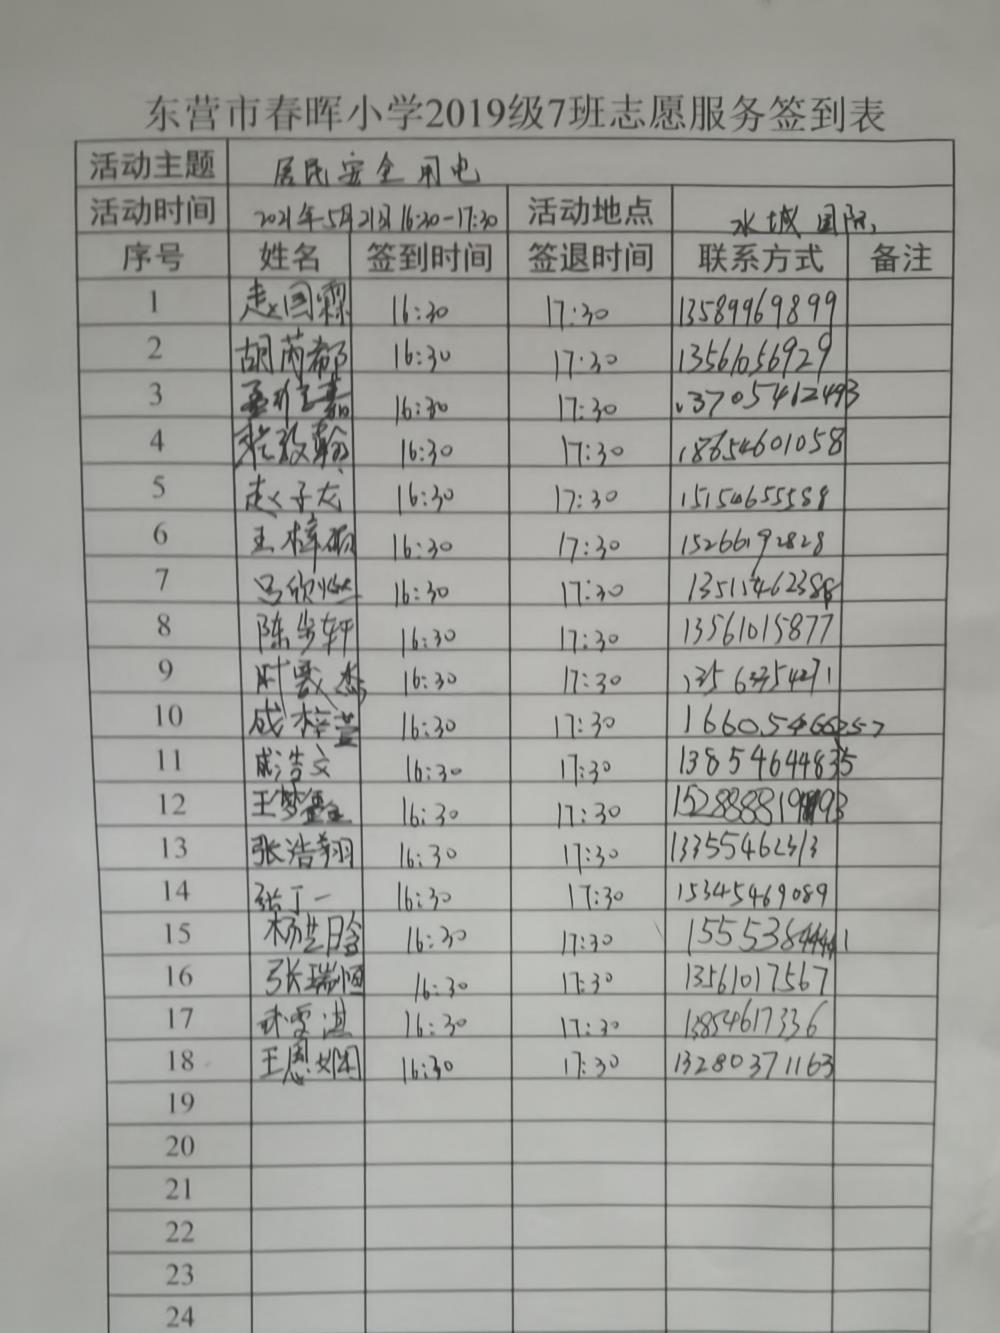 东营市春晖小学2019级7班志愿服务签到表
活动主题 居民安全用电
活动时间 2021年5月21日16:30-17:30 活动地点 水城国际
序号 姓名 签到时间 签退时间 联系方式 备注
1 赵国霖 16:30 17:30 13589969899
2 胡芮都 16:30 17:30 13561056929
3 16:30 17:30 13705462493
4 16:30 17:30 18654601058
5 赵子龙 16:30 17:30 15154655588
6 王梓硕 16:30 17:30 15266192828
7 吕欣 16:30 17:30 13515462388
8 陈步轩 16:30 17:30 13561015877
9 16:30 17:30
10 成梓萱 16:30 17:30
11 浩文 16:30 17:30 13854644835
12 王梦 16:30 17:30
13 张浩翔 16:30 17:30 13355462313
14 张丁一 16:30 17:30 15345469089
15 杨芷晗 16:30 17:30
16 张瑞恒 16:30 17:30 13561017567
17 16:30 17:30 13854617336
18 王恩 16:30 17:30 13280371163
19
20
21
22
23
24